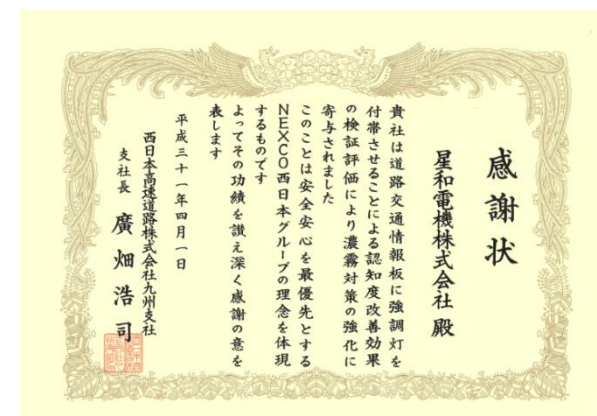 感謝状
星和電機株式会社 殿
貴社は道路交通情報板に強調灯を
付帯させることによる認知度改善効果
の検証評価により濃霧対策の強化に
寄与されました
このことは安全安心を最優先とする
NEXCO西日本グループの理念を体現
するものです
よってその功績を讃え深く感謝の意を
表します
平成三十一年四月一日
西日本高速道路株式会社九州支社
支社長 廣畑浩司